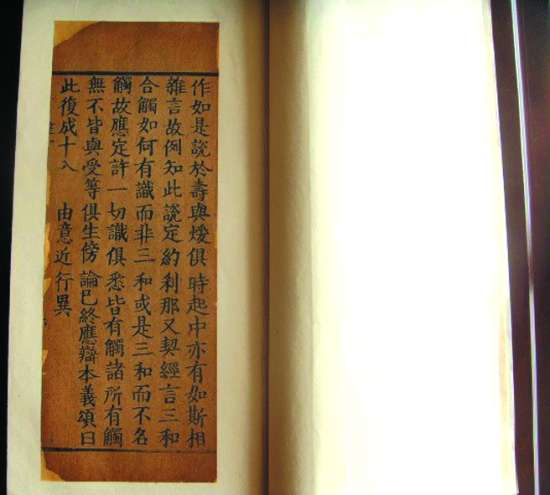 作如是說於壽與煖俱時起中亦有如斯相
雜言故例知此說定約剎那又契經言三和
合觸如何有識而非三和或是三和而不名
觸故應定許一切識俱悉皆有觸諸所有觸
無不皆與受等俱生傍論已終應辯本義頌曰
此復成十八　由意近行異